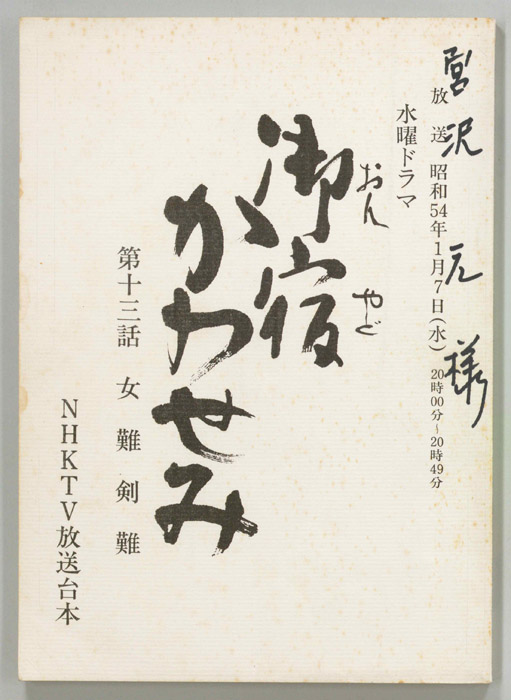 宮沢元様
放送 昭和54年1月7日(水) 20時00分~20時49分
水曜ドラマ
おんやど
御宿
かわせみ
第十三話 女難剣難
NHKTV放送台本